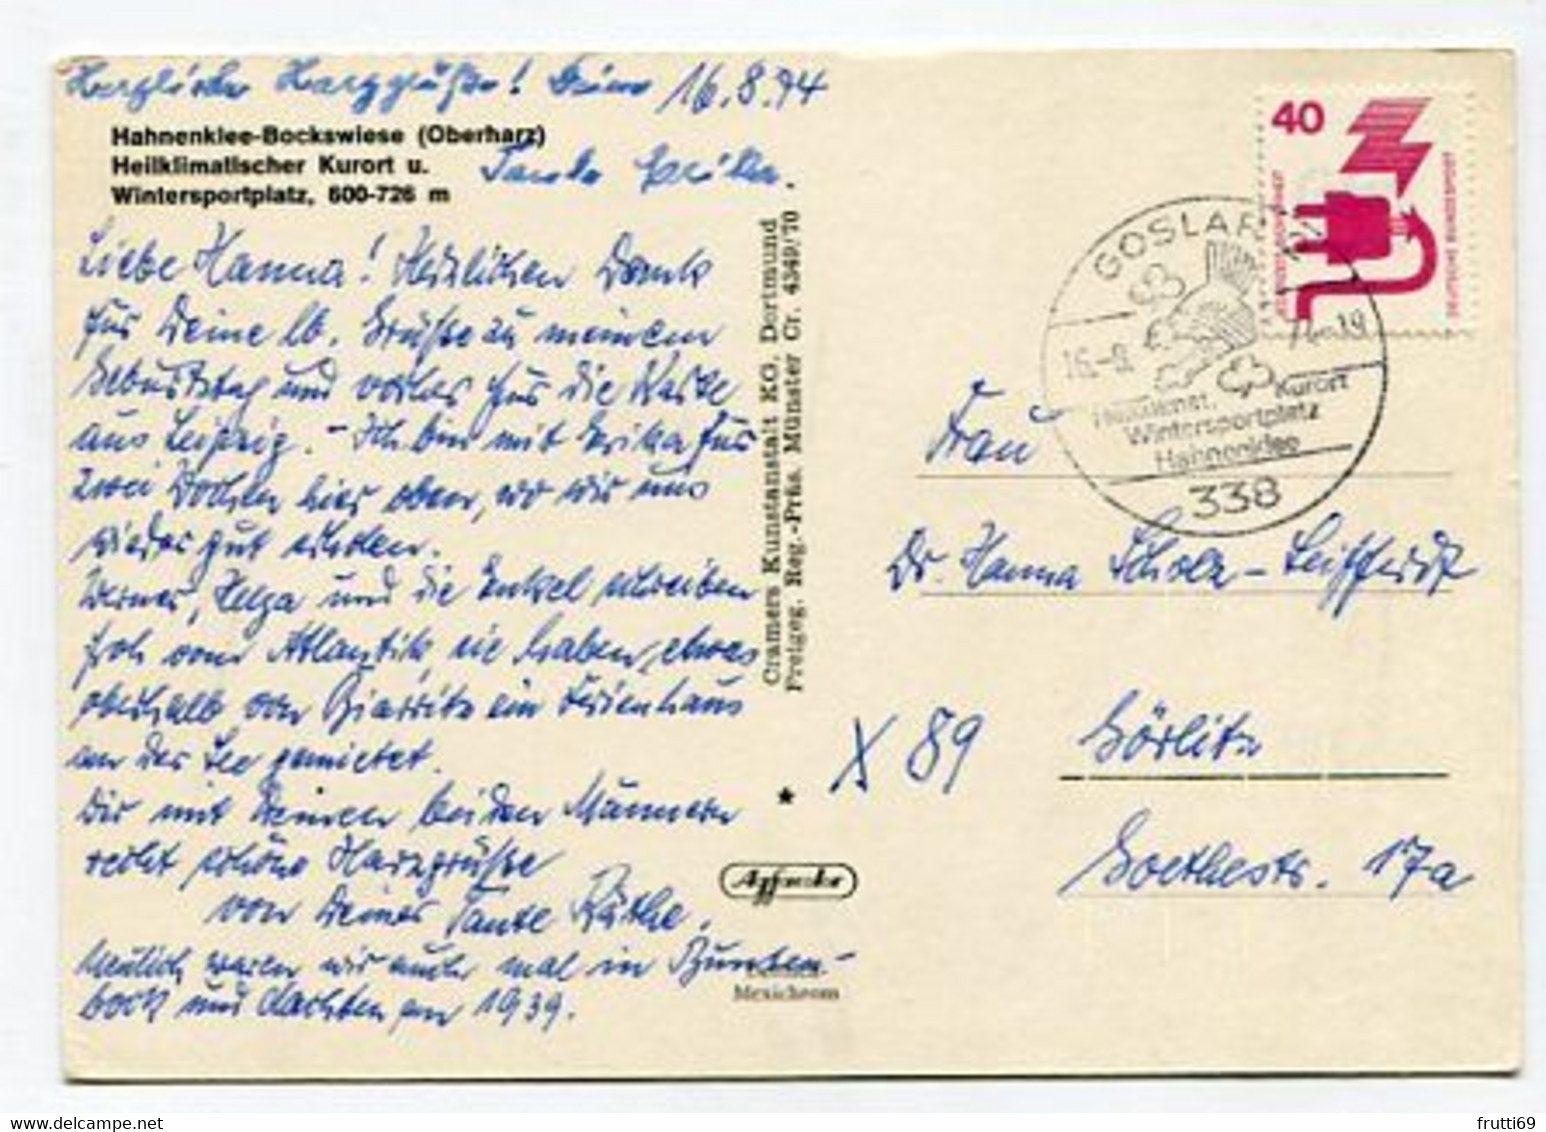 Herzliche Harzgrüße! Deine 16.8.74
Hahnenklee-Bockswiese (Oberharz)
Heilklimatischer Kurort u.
Wintersportplatz, 600-726 m
Tante Erika.
Liebe Hanna! Herzlichen Dank
für Deine lb. Grüße zu meinem
Geburtstag und vorher für die Karte
aus Leipzig. - Ich bin mit Erika für
zwei Wochen hier oben, wo wir uns
wieder gut erholen.
Werner, Helga und die Enkel schreiben
froh vom Atlantik, sie haben etwas
oberhalb von Biarritz ein Ferienhaus
an der See gemietet.
Dir mit Deinen beiden Männern
recht schöne Harzgrüße
von Deiner Tante Käthe.
Neulich waren wir auch mal in Bunten-
bock und dachten an 1939.
Cramers Kunstanstalt KG, Dortmund
Freigeg. Reg.-Präs. Münster Cr. 4349/70
*
Mexichrom
40
DEUTSCHE BUNDESPOST
GOSLAR
16.-8. 74-19
Heilklimat. Kurort
Wintersportplatz
Hahnenklee
338
Frau
Dr. Hanna Scholz-
X 89 Görlitz
Goethestr. 17a
frutti69